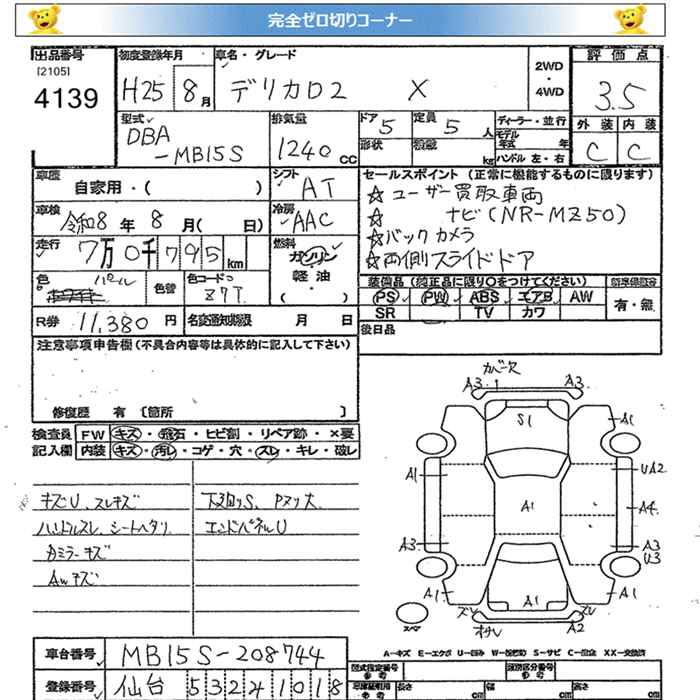 完全ゼロ切りコーナー
出品番号
[2105]
4139
初度登録年月
H25 8月
車名・グレード
デリカD2 X
2WD・4WD
評価点
3.5
外装 内装
C C
型式
DBA
-MB15S
排気量
1240 cc
ドア 5
形状
定員 5 人
積載 kg
ディーラー・並行
モデル年式 年
ハンドル左・右
車歴
自家用・( )
シフト AT
車検
令和8年 8月( 日)
冷房 AAC
走行
7万0千795km
燃料
ガソリン
軽油
・( )
セールスポイント(正常に機能するものに限ります)
☆ユーザー買取車両
☆ ナビ(NR-MZ50)
☆バックカメラ
☆両側スライドドア
色 パール
色替
色コード Z7T
装備品(純正品に限り〇をつけてください)
PS PW ABS エアB AW
SR TV カワ
有・無
R券 11,380円
名変通知期限 月 日
後日品
注意事項申告欄(不具合内容等は具体的に記入して下さい)
修復歴 有 [箇所 ]
検査員記入欄
FW キズ・飛石・ヒビ割・リペア跡・×要
内装 キズ・汚レ・コゲ・穴・スレ・キレ・破レ
キズU、スレキズ
ハンドルスレ、シートヘタリ
Dミラーキズ
AWキズ
下廻りS、Pヌケ大
エンドパネルU
カバーズ
A3 A3
S1
A1
A1 UA2
A1 A4
A3 A3
U3
A1 A1 A1
ズレ ズレ
オサレ A2
スペア
A-キズ E-エクボ U-凹み W-補修跡 S-サビ C-腐食 XX-交換済
車台番号 MB15S-208744
登録番号 仙台 532 41018
型式指定番号 参考
類別区分番号 参考
長さ cm
幅 cm
高さ cm